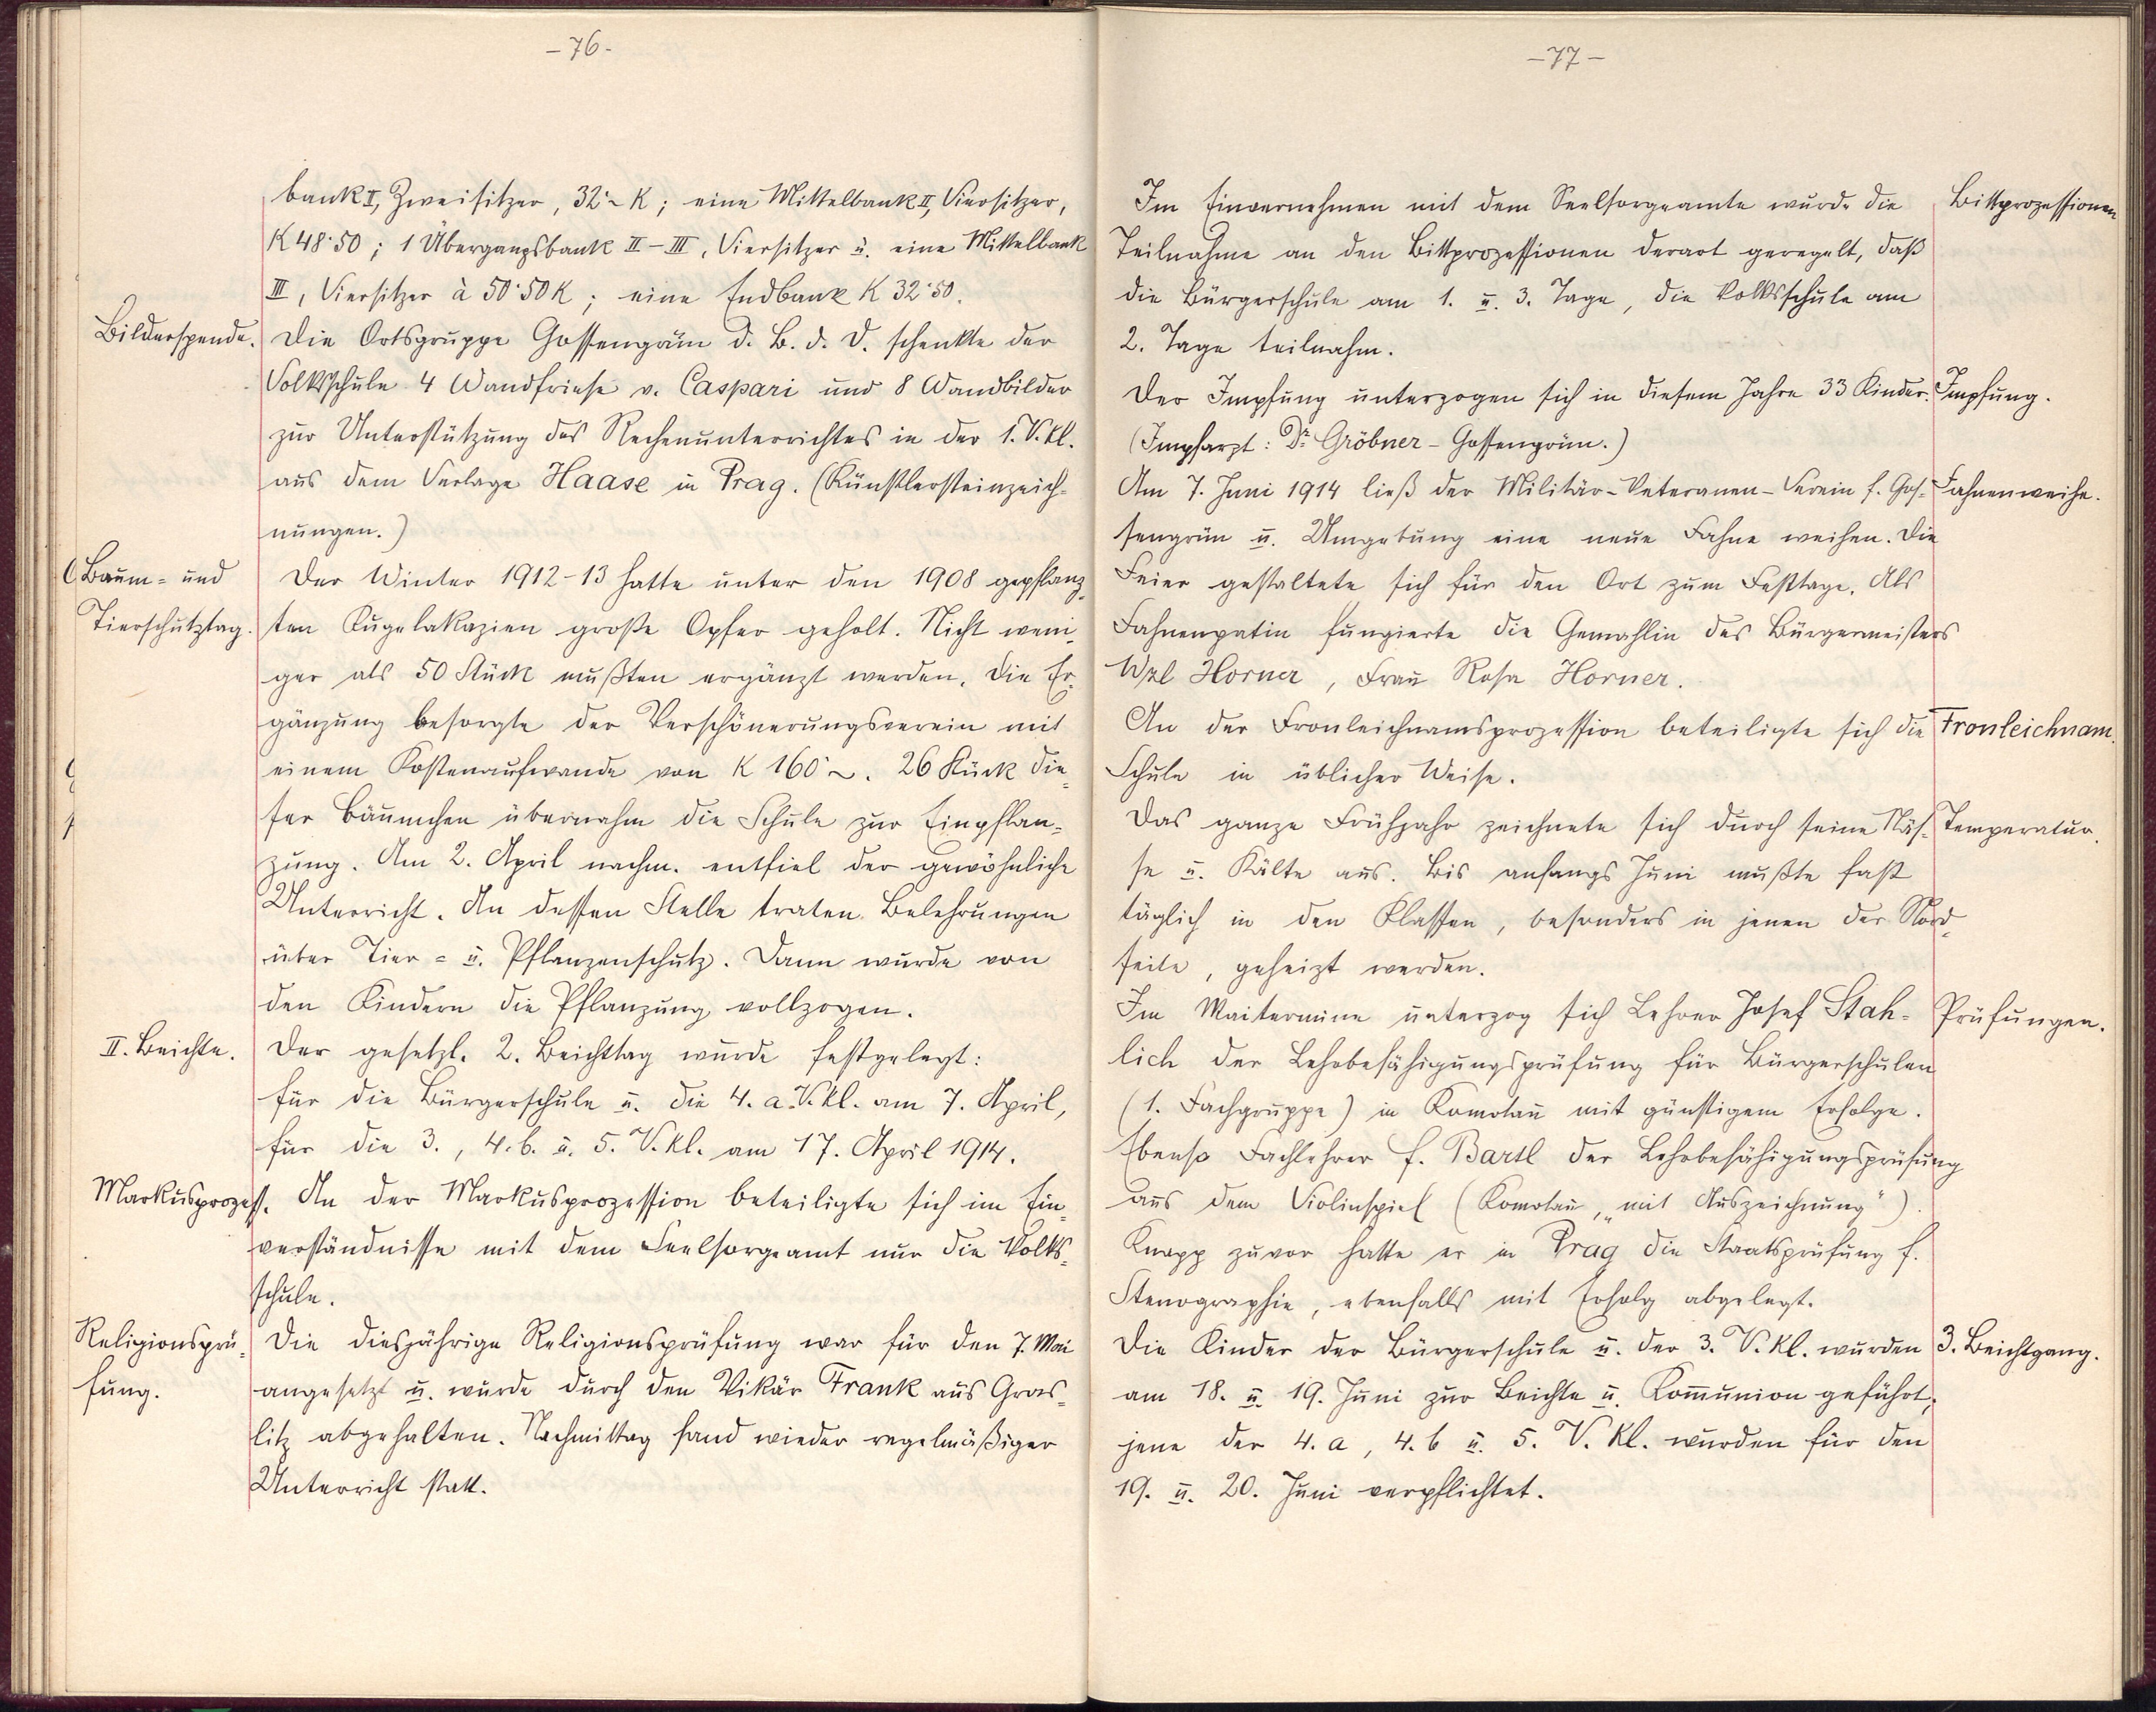 -76-
bank I, Zweisitzer, 32·~ K; eine Mittelbank II, Viersitzer,
K 48·50; 1 Übergangsbank II-III, Viersitzer u. eine Mittelbank
III, Viersitzer à 50·50 K; eine Endbank K 32·50.
Bilderspende.
Die Ortsgruppe Gossengrün d. B. d. D. schenkte der
Volksschule 4 Wandfriese v. Caspari und 8 Wandbilder
zur Unterstützung des Rechenunterrichtes in der 1. V. Kl.
aus dem Verlage Haase in Prag. (Künstlersteinzeich-
nungen.)
Baum- und
Tierschutztag.
Der Winter 1912-13 hatte unter den 1908 gepflanz-
ten Kugelakazien große Opfer geholt. Nicht weni-
ger als 50 Stück mußten ergänzt werden. Die Er-
gänzung besorgte der Verschönerungsverein mit
einem Kostenaufwande von K 160·~. 26 Stück die-
ser Bäumchen übernahm die Schule zur Einpflan-
zung. Am 2. April nachm. entfiel der gewöhnliche
Unterricht. An dessen Stelle traten Belehrungen
über Tier- u. Pflanzenschutz. Dann wurde von
den Kindern die Pflanzung vollzogen.
II. Beichte.
Der gesetzl. 2. Beichttag wurde festgelegt:
für die Bürgerschule u. die 4. a. V. Kl. am 7. April,
für die 3., 4. b. u. 5. V. Kl. am 17. April 1914.
Markusprozess.
An der Markusprozession beteiligte sich im Ein-
verständnisse mit dem Seelsorgeamt nur die Volks-
schule.
Religionsprü-
fung.
Die diesjährige Religionsprüfung war für den 7. Mai
angesetzt u. wurde durch den Vikär Frank aus Gras-
litz abgehalten. Nachmittag fand wieder regelmäßiger
Unterricht statt.
-77-
Im Einvernehmen mit dem Seelsorgeamte wurde die
Bittprozessionen
Teilnahme an den Bittprozessionen derart geregelt, daß
die Bürgerschule am 1. u. 3. Tage, die Volksschule am
2. Tage teilnahm.
Der Impfung unterzogen sich in diesem Jahre 33 Kinder.
Impfung.
(Impfarzt: Dr. Gröbner - Gossengrün.)
Am 7. Juni 1914 ließ der Militär-Veteranen-Verein f. Gos-
Fahnenweihe.
sengrün u. Umgebung eine neue Fahne weihen. Die
Feier gestaltete sich für den Ort zum Festtage. Als
Fahnenpatin fungierte die Gemahlin des Bürgermeisters
Wzl Horner, Frau Rosa Horner.
An der Fronleichnamsprozession beteiligte sich die
Fronleichnam.
Schule in üblicher Weise.
Das ganze Frühjahr zeichnete sich durch seine Näs-
Temperatur.
se u. Kälte aus. Bis anfangs Juni mußte fast
täglich in den Klassen, besonders in jenen der Nord-
seite, geheizt werden.
Im Maitermine unterzog sich Lehrer Josef Stah-
Prüfungen.
lich der Lehrbefähigungsprüfung für Bürgerschulen
(1. Fachgruppe) in Komotau mit günstigem Erfolge.
Ebenso Fachlehrer f. Bartl der Lehrbefähigungsprüfung
aus dem Violinspiel (Komotau, „mit Auszeichnung").
Knapp zuvor hatte er in Prag die Staatsprüfung f.
Stenographie, ebenfalls mit Erfolg abgelegt.
Die Kinder der Bürgerschule u. der 3. V. Kl. wurden
3. Beichtgang.
am 18. u. 19. Juni zur Beichte u. Kom̅union geführt,
jene der 4. a, 4. b u. 5. V. Kl. wurden für den
19. u. 20. Juni verpflichtet.